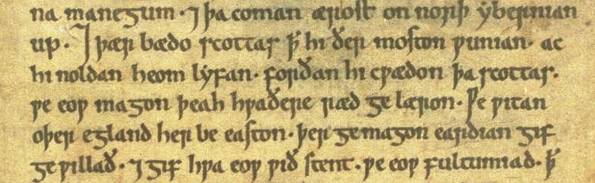 na manegum · ⁊ þa coman ærost on norþ ybernian
up · ⁊ þær bædo scottas þ̄ hi ðer moston ƿunian · ac
hi noldan heom lyfan · forðan hi cƿædon þa scottas ·
ƿe eoƿ magon þeah hƿaðere ræd ge læron · Ƿe ƿitan
oþer egland her be easton · þer ge magon eardian gif
ge ƿillað · ⁊ gif hƿa eoƿ ƿið stent · ƿe eoƿ fultumiad · þ̄